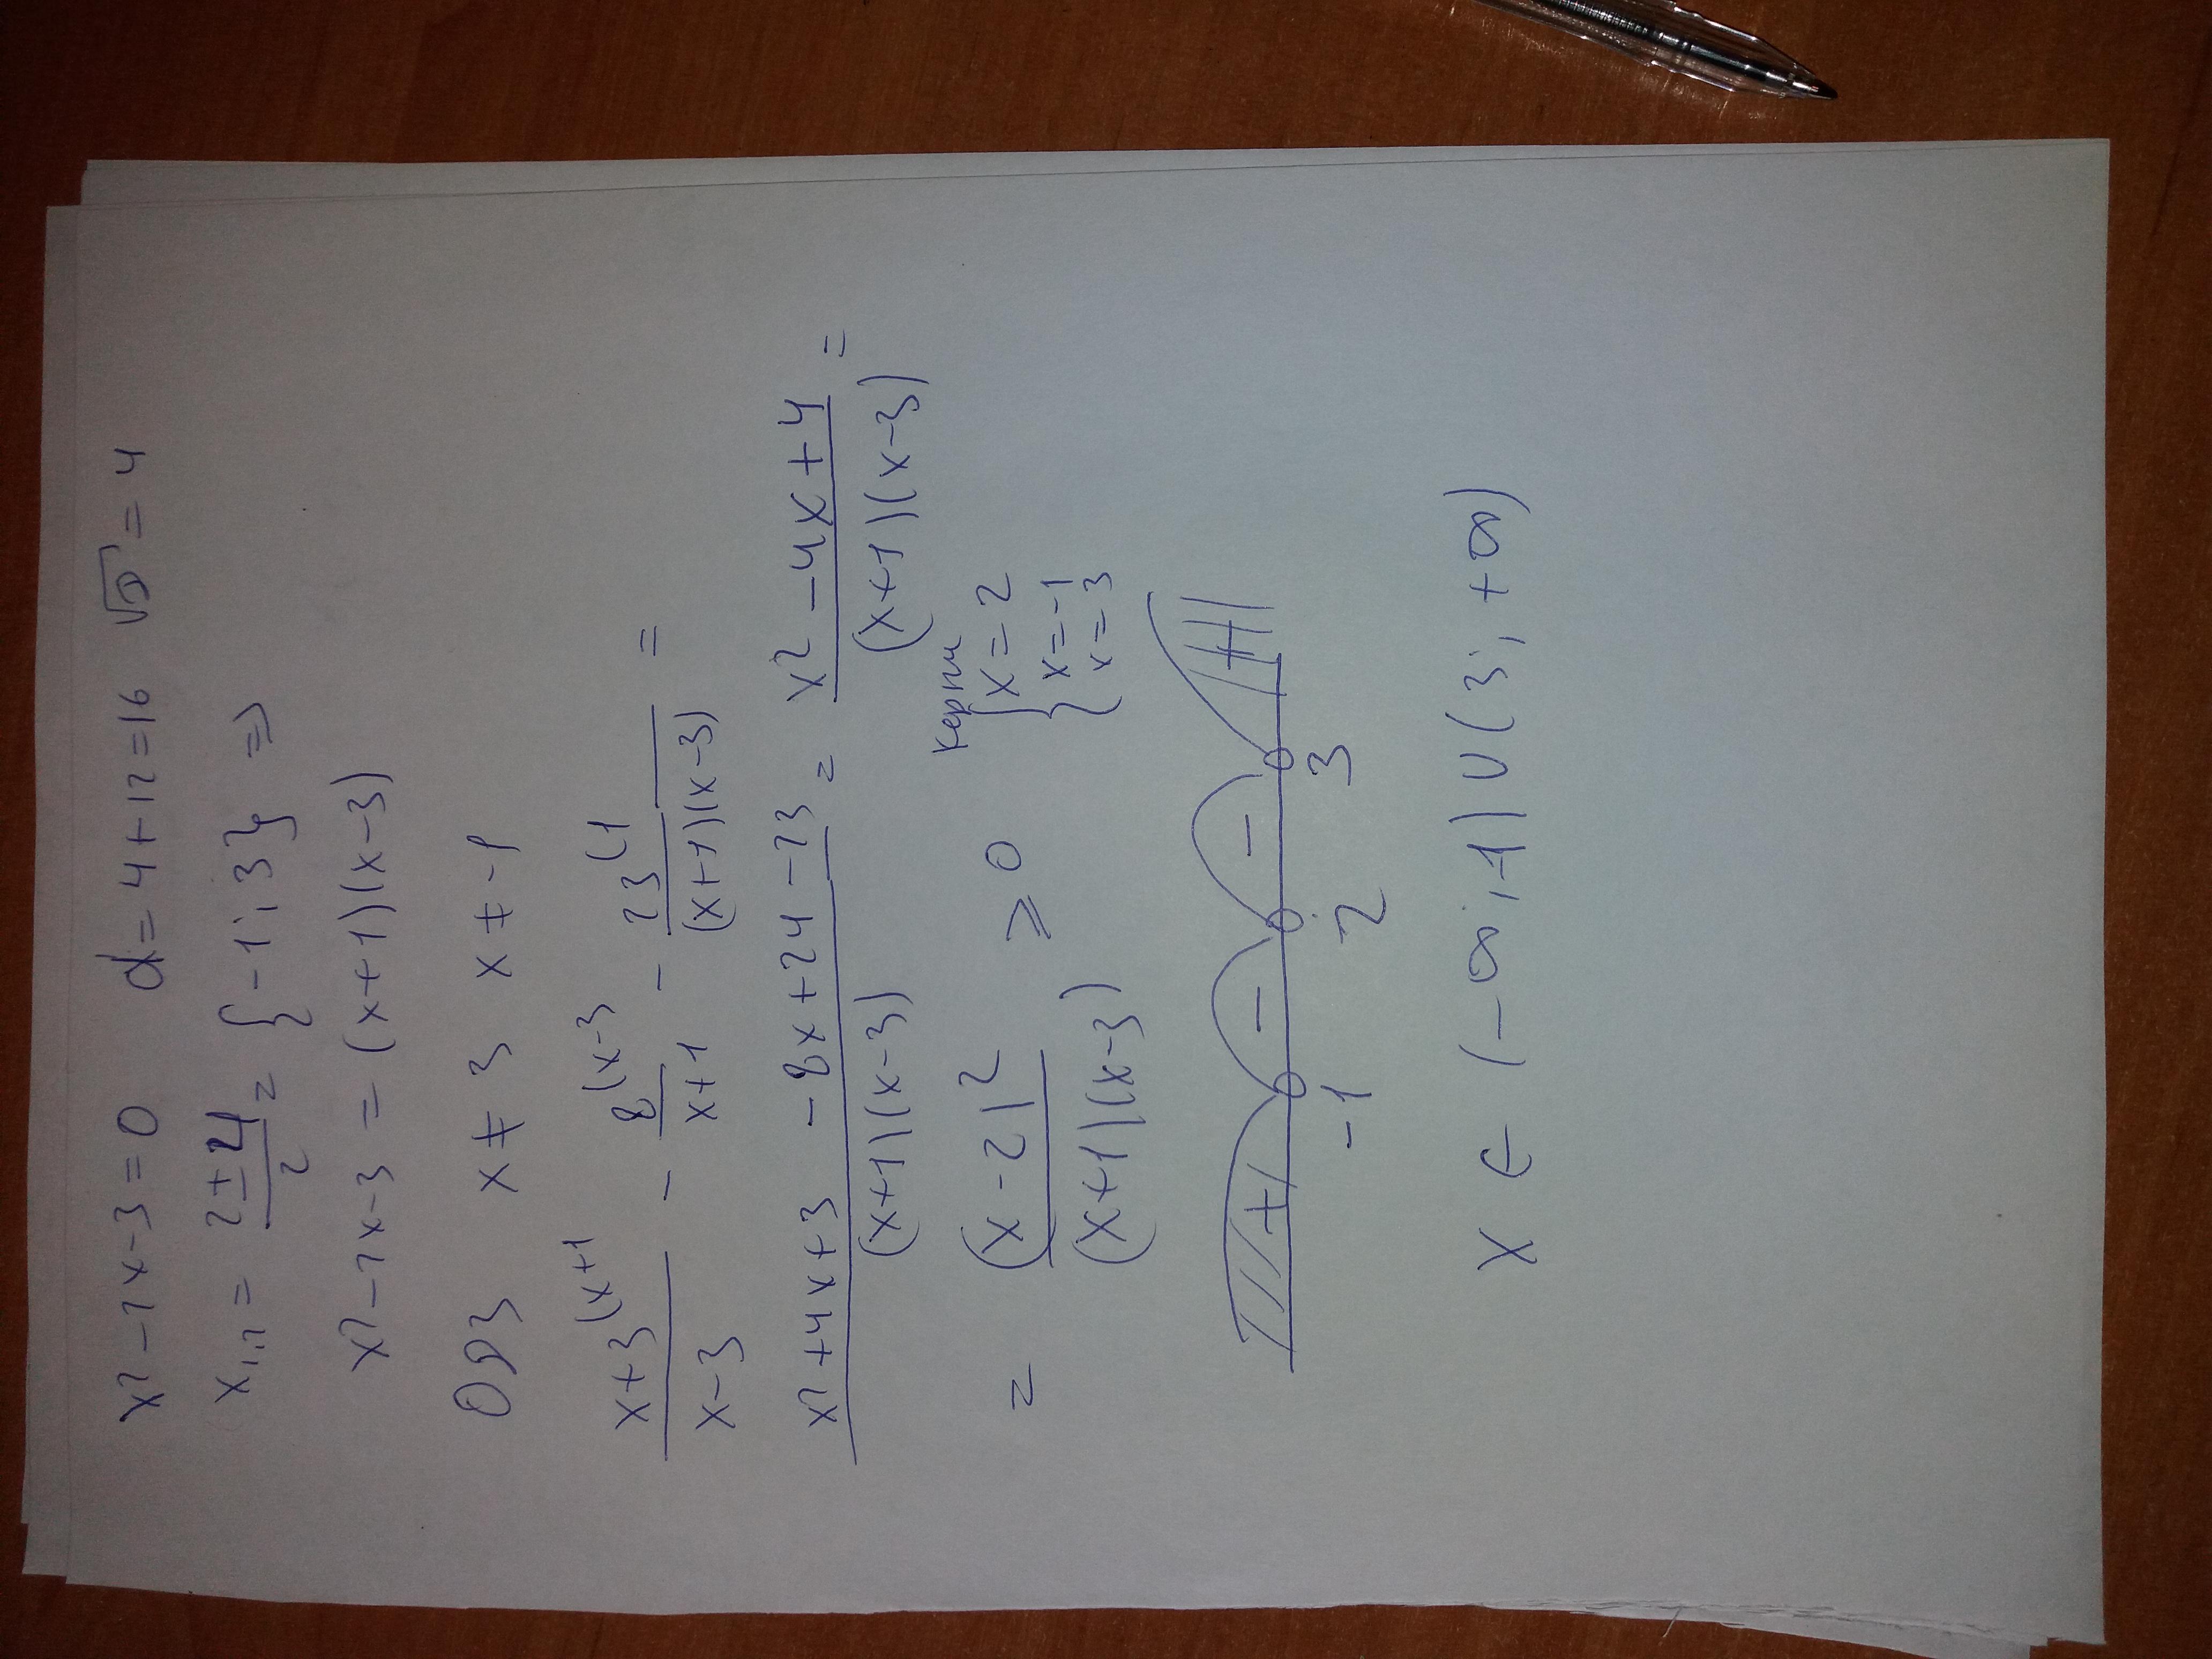 x² - 2x - 3 = 0 d = 4 + 12 = 16 √D = 4
x₁,₂ = (2 ± 4)/2 = {-1; 3} ⇒
x² - 2x - 3 = (x+1)(x-3)
ОДЗ x ≠ 3 x ≠ -1
(x+3)/(x-3) (x+1 - 8/(x+1) (x-3 - 23/((x+1)(x-3)) (1 =
(x² + 4x + 3 - 8x + 24 - 23)/((x+1)(x-3)) = (x² - 4x + 4)/((x+1)(x-3)) =
= (x-2)²/((x+1)(x-3)) ≥ 0
корни
{ x = 2
{ x = -1
x = 3
+ - - +
-1 2 3
x ∈ (-∞; -1) ∪ (3; +∞)